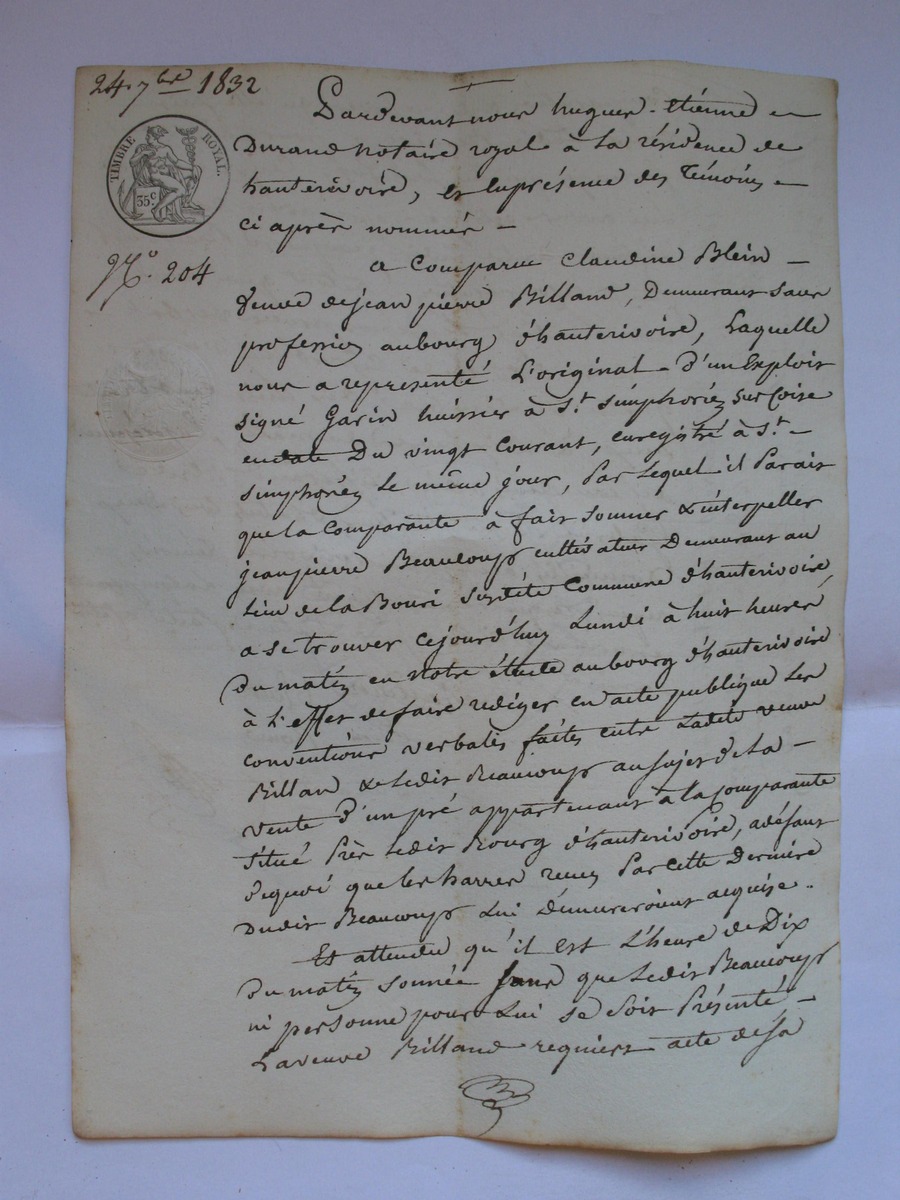 24. 7bre 1832
TIMBRE ROYAL.
35c
No. 204
Pardevant nous hugues-étienne
Durand notaire royal à la résidence de
hauterivoire, et en présence des témoins
ci après nommés
a comparu Claudine Blein
veuve de jean pierre Billand, Demeurant sans
profession au bourg d'hauterivoire, Laquelle
nous a représenté L'original D'un Exploit
signé Garin huissier à St. simphorien sur Coise
en date Du vingt Courant, enregistré à St.
simphorien Le même jour, Par Lequel il Parait
que la Comparante à fait sommer & interpeller
jean pierre Beaucoup cultivateur Demeurant au
Lieu de la Bouri susdite Commune d'hauterivoire,
a se trouver cejourd'huy Lundi à huit heures
Du matin en notre étude au bourg d'hauterivoire
à L'effet de faire rediger en acte publique Les
conventions verbales faites entre Ladite veuve
Billan & Ledit Beaucoup au sujet de La
vente D'un pré appartenant à la Comparante
situé Près Ledit Bourg d'hauterivoire, a défaut
Dequoi que les harres reçus Par cette Dernière
Dudit Beaucoup Lui Demeureroient acquise..
Et attendu qu'il est L'heure de Dix
Du matin sonnée sans que Ledit Beaucoup
ni personne pour Lui se soit Présenté
La veuve Billand requiert acte de sa